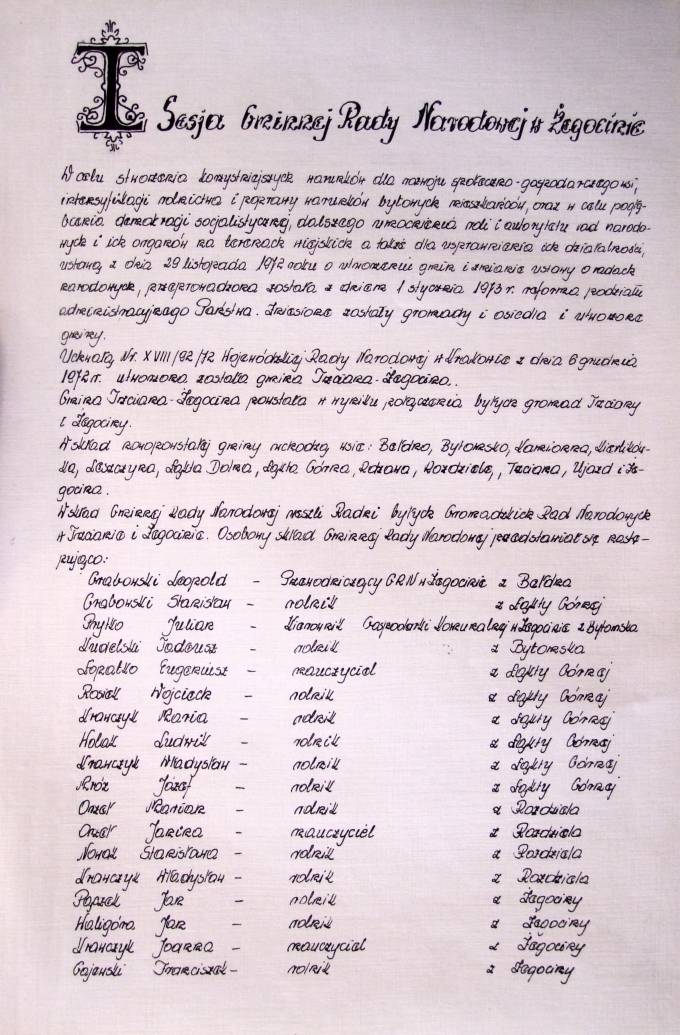 I Sesja Gminnej Rady Narodowej w Żegocinie
W celu stworzenia korzystniejszych warunków dla rozwoju społeczno-gospodarczego wsi,
intensyfikacji rolnictwa i poprawy warunków bytowych mieszkańców, oraz w celu pogłę-
bienia demokracji socjalistycznej, dalszego umocnienia roli i autorytetu rad narodo-
wych i ich organów na terenach wiejskich a także dla usprawnienia ich działalności,
ustawą z dnia 29 listopada 1972 roku o utworzeniu gmin i zmianie ustawy o radach
narodowych, przeprowadzona została z dniem 1 stycznia 1973 r. reforma podziału
administracyjnego Państwa. Zniesione zostały gromady i osiedla i utworzono
gminy.
Uchwałą Nr. XVIII/92/72 Wojewódzkiej Rady Narodowej w Krakowie z dnia 6 grudnia
1972 r. utworzona została gmina Trzciana-Żegocina.
Gmina Trzciana-Żegocina powstała w wyniku połączenia byłych gromad Trzciany
i Żegociny.
W skład nowopowstałej gminy wchodzą wsie: Bełdno, Bytomsko, Kamionna, Kierlików-
ka, Leszczyna, Łąkta Dolna, Łąkta Górna, Rdzawa, Rozdziele, Trzciana, Ujazd i Że-
gocina.
W skład Gminnej Rady Narodowej weszli Radni byłych Gromadzkich Rad Narodowych
w Trzcianie i Żegocinie. Osobowy skład Gminnej Rady Narodowej przedstawiał się nastę-
pująco:
Grabowski Leopold - Przewodniczący GRN w Żegocinie z Bełdna
Grabowski Stanisław - rolnik z Łąkty Górnej
Pytko Julian - Kierownik Gospodarki Komunalnej w Żegocinie z Bytomska
Kudelski Tadeusz - rolnik z Bytomska
Łopatko Eugeniusz - nauczyciel z Łąkty Górnej
Rosiek Wojciech - rolnik z Łąkty Górnej
Krawczyk Maria - rolnik z Łąkty Górnej
Wolak Ludwik - rolnik z Łąkty Górnej
Krawczyk Władysław - rolnik z Łąkty Górnej
Mróz Józef - rolnik z Łąkty Górnej
Orzeł Marian - rolnik z Rozdziela
Orzeł Janina - nauczyciel z Rozdziela
Nowak Stanisława - rolnik z Rozdziela
Krawczyk Władysław - rolnik z Rozdziela
Pączek Jan - rolnik z Żegociny
Waligóra Jan - rolnik z Żegociny
Krawczyk Joanna - nauczyciel z Żegociny
Gajewski Franciszek - rolnik z Żegociny